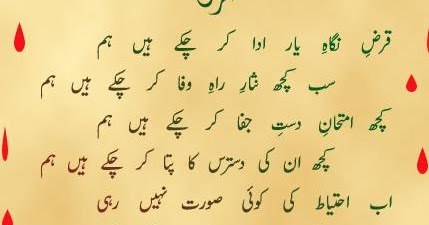 قرضِ نگاہِ یار ادا کر چکے ہیں ہم
سب کچھ نثارِ راہِ وفا کر چکے ہیں ہم
کچھ امتحانِ دستِ جفا کر چکے ہیں ہم
کچھ ان کی دسترس کا پتا کر چکے ہیں ہم
اب احتیاط کی کوئی صورت نہیں رہی